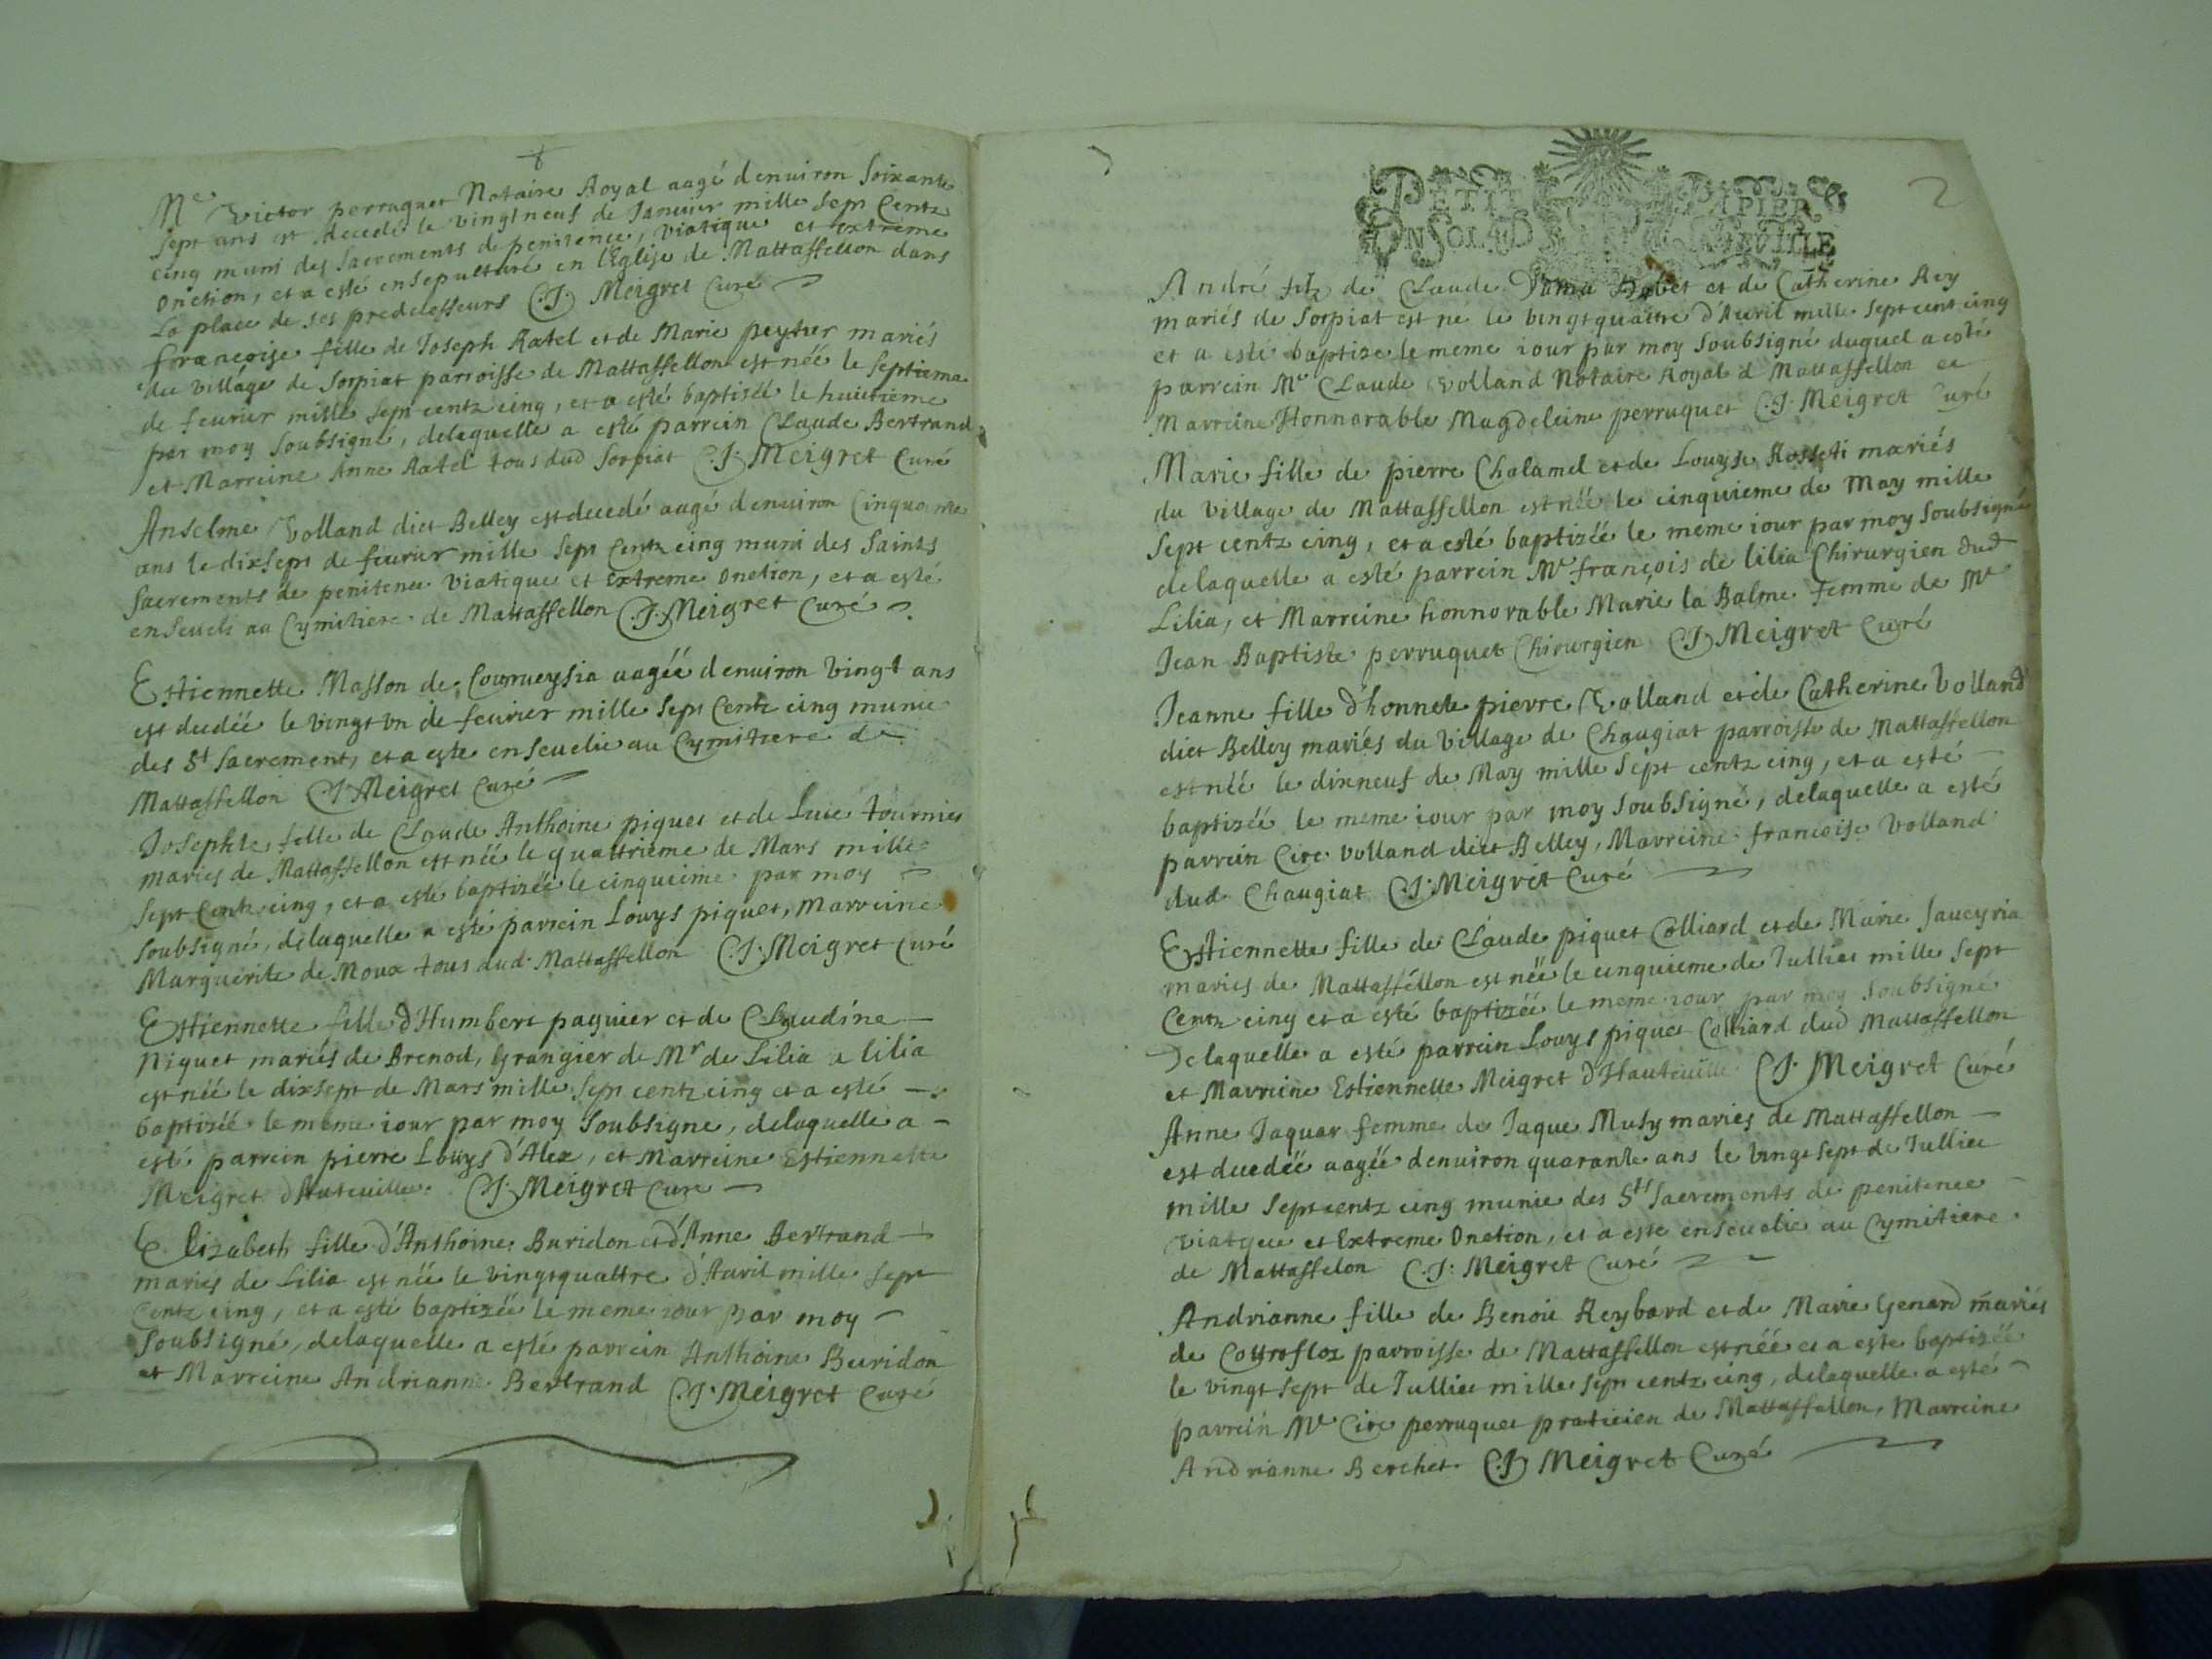 Me Victor perruquet Notaire Royal aagé denuiron Soixante
sept ans est decedé le vingtneuf de Januier mille sept Centz
cinq muni des Sacrements de penitence, viatique et extréme
Onction, et a esté ensepulturé en l'Eglise de Mattaffellon dans
La place de ses predecesseurs C.J. Meigret Curé
francoise fille de Joseph Ratel et de Marie peytier mariés
du village de Sorpiat parroisse de Mattaffellon est néé le septieme
de feurier mille sept centz cinq, et a esté baptisée le huitieme
par moy soubsigné, delaquelle a esté parrein Claude Bertrand
et Marreine Anne Ratel tous dud Sorpiat C.J. Meigret Curé
Anselme Volland dict Belley est decedé aagé denuiron Cinquante
ans le dixsept de feurier mille sept Centz cinq muni des Saints
Sacrements de penitence Viatique et Extreme Onction, et a esté
enseueli au Cymitiere de Mattaffellon C.J. Meigret Curé
Estiennette Masson de Courueysia aagéé denuiron Vingt ans
est decedéé le vingt vn de feurier mille sept Centz cinq munie
des St Sacrement, et a este enseuelie au Cymitiere de
Mattaffellon C.J. Meigret Curé
Josephte fille de Claude Anthoine piquet et de Luce tournier
mariés de Mattaffellon est néé le quattrieme de Mars mille
sept Centz cinq, et a esté baptizéé le cinquieme par moy
soubsigné, delaquelle a esté parrein Louys piquet, Marreine
Marguerite de Moux tous dud Mattaffellon C.J. Meigret Curé
Estiennette fille d'Humbert paquier et de Claudine
Niquet mariés de Brenod, Grangier de Mr de Lilia a lilia
est néé le dixsept de Mars mille sept centz cinq et a esté
baptizéé le meme iour par moy soubsigne, delaquelle a
esté parrein pierre Louys d'Alex, et Marreine Estiennette
Meigret d'Auteuille C.J. Meigret Cure
Elizabeth fille d'Anthoine Buridon et d'Anne Bertrand
mariés de Lilia est néé le vingtquattre d'Auril mille sept
Centz cinq, et a esté baptizéé le meme iour par moy
soubsigné, delaquelle a esté parrein Anthoine Buridon
et Marreine Andrianne Bertrand C.J. Meigret Curé
2
PETIT PAPIER
UN SOL LE FEUILLE
André filz de Claude et de Catherine Rey
mariés de Sorpiat est né le vingtquattre d'Auril mille sept cent cinq
et a esté baptize le meme iour par moy soubsigné duquel a esté
parrein Me Claude Volland Notaire Royal d Mattaffellon et
Marreine Honnorable Magdeleine perruquet C.J. Meigret Curé
Marie fille de pierre Chalamel et de Louyse Rosseti mariés
du village de Mattaffellon est néé le cinquieme de May mille
sept centz cinq, et a esté baptizéé le meme iour par moy soubsigné
delaquelle a esté parrein Me françois de lilia Chirurgien dud
Lilia, et Marreine honnorable Marie la Balme femme de Me
Jean Baptiste perruquet Chirurgien C.J. Meigret Curé
Jeanne fille d'honnete pierre Volland et de Catherine Volland
dict Belley mariés du village de Chaugiat parroisse de Mattaffellon
est néé le dixneuf de May mille sept centz cinq, et a esté
baptizéé le meme iour par moy soubsigné, delaquelle a esté
parrein Cire Volland dict Belley, Marreine francoise Volland
dud Chaugiat C.J. Meigret Curé
Estiennette fille de Claude piquet Colliard et de Marie Jauceyria
mariés de Mattaffellon est néé le cinquieme de Jullies mille sept
Centz cinq et a esté baptizéé le meme iour par moy soubsigné
Delaquelle a esté parrein Louys piquet Colliard dud Mattaffellon
et Marreine Estiennette Meigret d'Hauteuille C.J. Meigret Curé
Anne Jaquar femme de Jaque Musy mariés de Mattaffellon
est decedéé aagéé denuiron quarante ans le vingt sept de Jullies
mille sept centz cinq munie des Sts Sacrements de penitence
viatque et Extreme Onction, et a este enseuelie au Cymitiere
de Mattaffelon C.J. Meigret Curé
Andrianne fille de Benoit Reybard et de Marie Genard mariés
de parroisse de Mattaffellon est néé et a este baptizéé
le vingt sept de Jullies mille sept centz cinq, delaquelle a esté
parrein Me Cire perruquet praticien de Mattaffellon, Marreine
Andrianne Berchet C.J. Meigret Curé